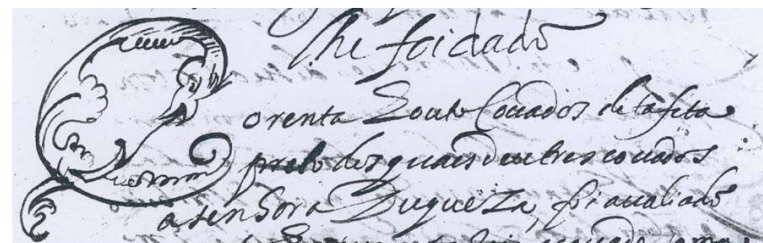 lhe foi dado
Corenta E outo Couados de tafeta
preto dos quais deu tres couados
a senhora Duqueza, foi aualiado